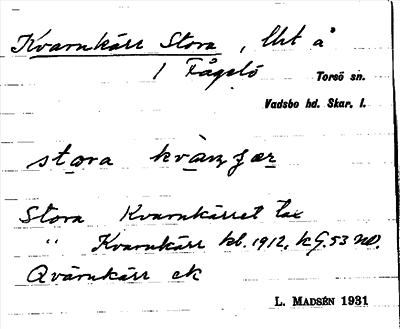 Kvarnkärr Stora, lht å
1 Fågelö
Torsö sn.
Vadsbo hd. Skar. l.
stora kvànçær
Stora Kvarnkärret tax
" Kvarnkärr kb. 1912, kG. 53 NO.
Qvärnkärr ek
L. MADSÉN 1931